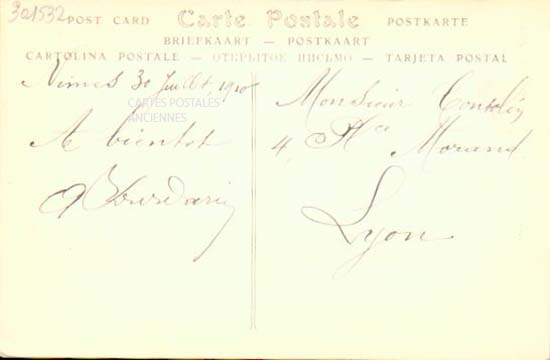 301532
POST CARD Carte Postale POSTKARTE
BRIEFKAART — POSTKAART
CARTOLINA POSTALE — ОТКРЫТОЕ ПИСЬМО — TARJETA POSTAL
Nimes 30 Juillet, 1910
CARTES POSTALES
ANCIENNES
A bientot
Monsieur
4, Pl^ce Morand
Lyon